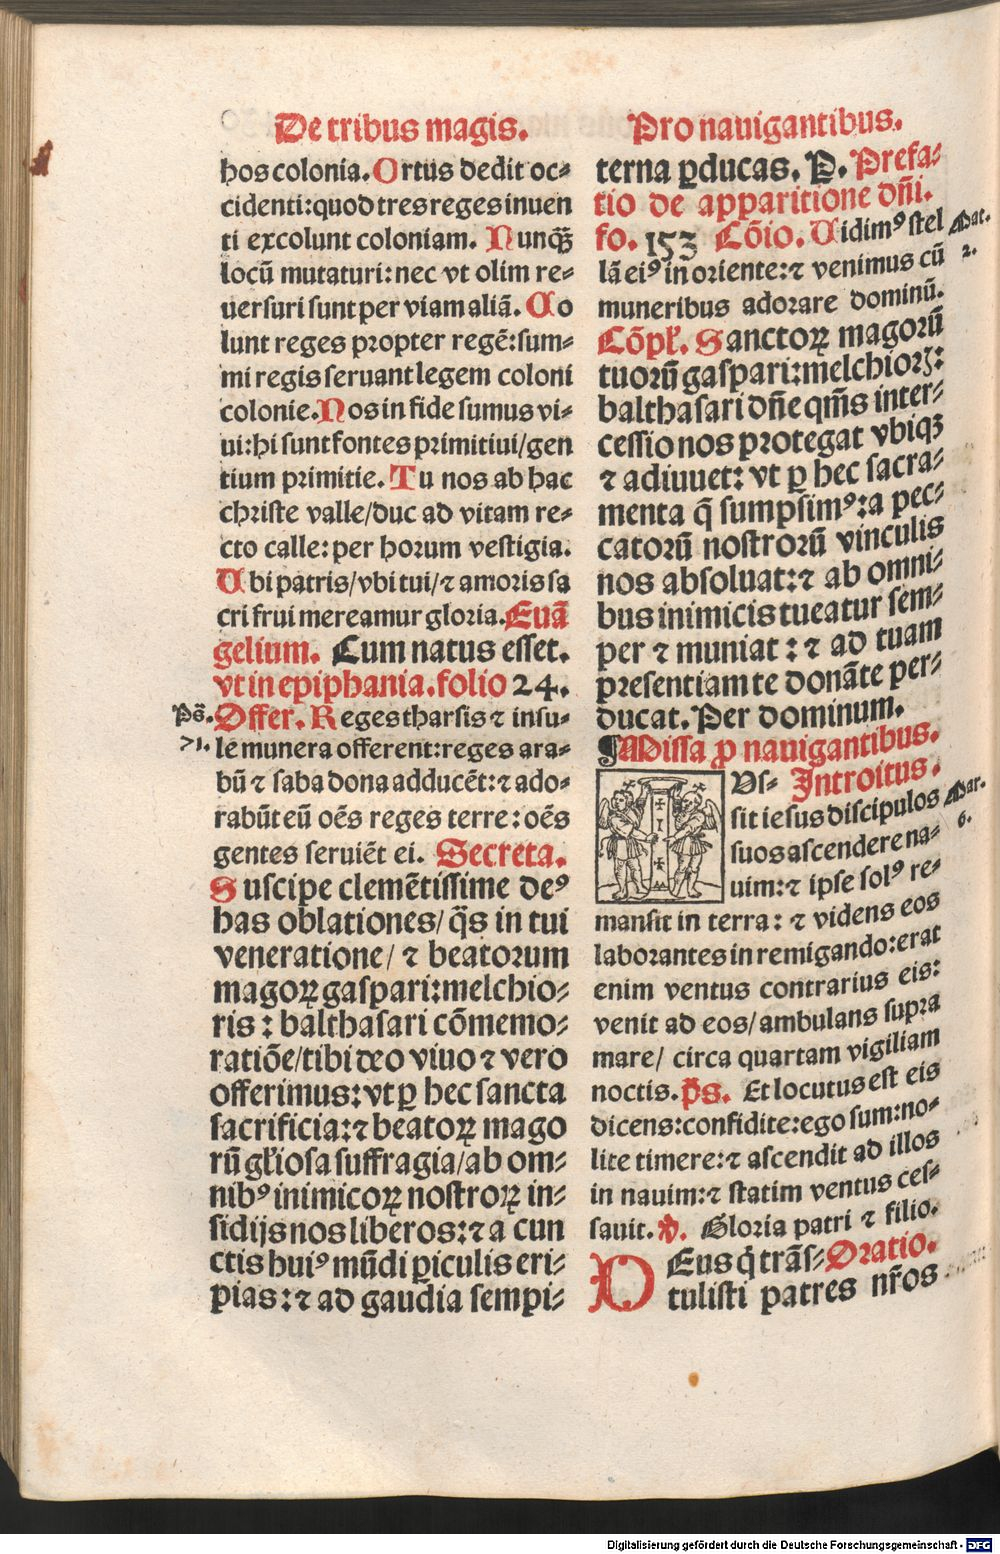 De tribus magis.
hos colonia. Ortus dedit oc⸗
cidenti:quod tres reges inuen
ti excolunt coloniam. Nunqꝫ̃
locū mutaturi:nec vt olim re⸗
uersuri sunt per viam aliā. Co
lunt reges propter regē:sum⸗
mi regis seruant legem coloni
colonie. Nos in fide sumus vi⸗
ui:hi sunt fontes primitiui/gen
tium primitie. Tu nos ab hac
christe valle/duc ad vitam re⸗
cto calle:per horum vestigia.
Ubi patris/vbi tui/⁊ amoris sa
cri frui mereamur gloria. Euā
gelium. Cum natus esset.
vt in epiphania.folio 24.
Ps̄. Offer. Reges tharsis ⁊ insu⸗
71. le munera offerent:reges ara⸗
bū ⁊ saba dona adducēt:⁊ ado⸗
rabūt eū oēs reges terre:oēs
gentes seruiēt ei. Secreta.
Suscipe clemētissime deꝰ
has oblationes/q̄s in tui
veneratione/⁊ beatorum
magoꝝ gaspari:melchio⸗
ris:balthasari cōmemo⸗
ratiōe/tibi deo viuo ⁊ vero
offerimus:vt ꝑ hec sancta
sacrificia:⁊ beatoꝝ mago
rū gl̄iosa suffragia/ab om⸗
nibꝰ inimicoꝝ nostroꝝ in⸗
sidijs nos liberos:⁊ a cun
ctis huiꝰ mūdi ꝑiculis eri⸗
pias:⁊ ad gaudia sempi⸗
Pro nauigantibus.
terna ꝑducas. P. Prefa⸗
tio de apparitione dn̄i.
fo. 153 Cōio. Uidimꝰ stel Mat.
lā eiꝰ in oriente:⁊ venimus cū 2.
muneribus adorare dominū.
Cōpl̄. Sanctoꝝ magorū
tuorū gaspari:melchiorꝫ:
balthasari dn̄e qm̄s inter⸗
cessio nos protegat vbiqꝫ
⁊ adiuuet:vt ꝑ hec sacra⸗
menta q̄ sumpsimꝰ:a pec⸗
catorū nostrorū vinculis
nos absoluat:⁊ ab omni⸗
bus inimicis tueatur sem⸗
per ⁊ muniat:⁊ ad tuam
presentiam te donāte per⸗
ducat. Per dominum.
¶Missa ꝓ nauigantibus.
Us⸗ Introitus.
sit iesus discipulos Mar.
suos ascendere na⸗ 6.
uim:⁊ ipse solꝰ re⸗
mansit in terra:⁊ videns eos
laborantes in remigando:erat
enim ventus contrarius eis:
venit ad eos/ambulans supra
mare/ circa quartam vigiliam
noctis. p̄s. Et locutus est eis
dicens:confidite:ego sum:no⸗
lite timere:⁊ ascendit ad illos
in nauim:⁊ statim ventus ces⸗
sauit. ℣. Gloria patri ⁊ filio.
DEus q̇ trās⸗ Oratio.
tulisti patres nr̄os
Digitalisierung gefördert durch die Deutsche Forschungsgemeinschaft - DFG